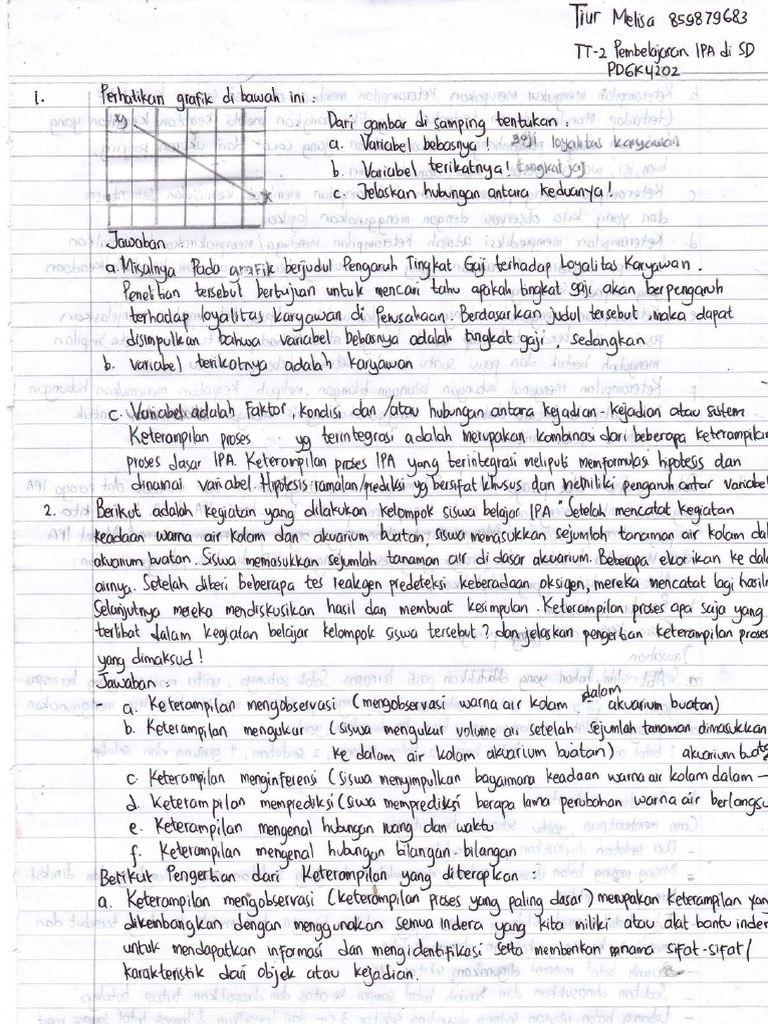 Tiur Melisa 859879683
TT-2 Pembelajaran IPA di SD
PDGK4202
1. Perhatikan grafik di bawah ini :
y
x
Dari gambar di samping tentukan :
a. Variabel bebasnya ! gaji loyalitas karyawan
b. Variabel terikatnya ! tingkat gaji
c. Jelaskan hubungan antara keduanya !
Jawaban
a. Misalnya Pada grafik berjudul Pengaruh Tingkat Gaji terhadap Loyalitas Karyawan.
Penelitian tersebut bertujuan untuk mencari tahu apakah tingkat gaji akan berpengaruh
terhadap loyalitas karyawan di Perusahaan. Berdasarkan judul tersebut, maka dapat
disimpulkan bahwa variabel bebasnya adalah tingkat gaji, sedangkan
b. variabel terikatnya adalah karyawan
c. Variabel adalah Faktor, kondisi dan /atau hubungan antara kejadian-kejadian atau sistem
Keterampilan proses yg terintegrasi adalah merupakan kombinasi dari beberapa keterampilan
proses dasar IPA. Keterampilan proses IPA yang terintegrasi meliputi memformulasi hipotesis dan
dinamai variabel. Hipotesis : ramalan/prediksi yg bersifat khusus dan memiliki pengaruh antar variabel
2. Berikut adalah kegiatan yang dilakukan kelompok siswa belajar IPA "Setelah mencatat kegiatan
keadaan warna air kolam dan akuarium buatan, siswa memasukkan sejumlah tanaman air kolam dal
akuarium buatan. Siswa memasukkan sejumlah tanaman air di dasar akuarium. Beberapa ekor ikan ke dal
airnya. Setelah diberi beberapa tes reakgen predeteksi keberadaan oksigen, mereka mencatat lagi hasiln
Selanjutnya mereka mendiskusikan hasil dan membuat kesimpulan. Keterampilan proses apa saja yang
terlibat dalam kegiatan belajar kelompok siswa tersebut ? dan jelaskan pengertian keterampilan proses
yang dimaksud !
Jawaban :
- a. Keterampilan mengobservasi (mengobservasi warna air kolam dalam akuarium buatan)
b. Keterampilan mengukur (siswa mengukur volume air setelah sejumlah tanaman dimasukkan
ke dalam air kolam akuarium buatan) akuarium buata
c. Keterampilan menginferensi (siswa menyimpulkan bagaimana keadaan warna air kolam dalam -
d. Keterampilan memprediksi (siswa memprediksi berapa lama perubahan warna air berlangsu
e. Keterampilan mengenal hubungan ruang dan waktu
f. Keterampilan mengenal hubungan bilangan-bilangan
Berikut Pengertian dari Keterampilan yang diterapkan :
a. Keterampilan mengobservasi (keterampilan proses yang paling dasar) merupakan keterampilan yan
dikembangkan dengan menggunakan semua indera yang kita miliki atau alat bantu inder
untuk mendapatkan informasi dan mengidentifikasi serta memberikan nama sifat-sifat/
karakteristik dari objek atau kejadian.